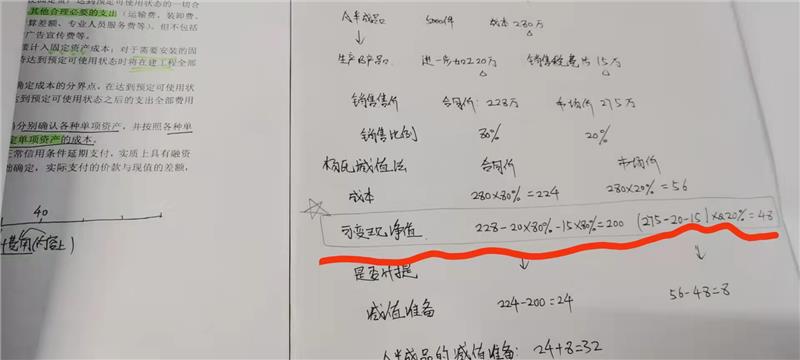 达到预定可使用状态的一切合
其他合理必要的支出（运输费、装卸费、
算差额、专业人员服务费等）。但不包括
广告宣传费等。
接计入固定资产成本；对于需要安装的固
待达到预定可使用状态时将在建工程全部
确定成本的分界点，在达到预定可使用状
达到预定可使用状态之后的支出全部费用
分别确认各种单项资产，并按照各种单
定单项资产的成本。
正常信用条件延期支付，实质上具有融资
础确定，实际支付的价款与现值的差额，
40
A半成品 5000件 成本280万
生产B产品 进一步加工20万 销售税费共15万
销售售价 合同价：228万 市场价275万
销售比例 80% 20%
减值法 合同价 市场价
成本 280×80%=224 280×20%=56
可变现净值 228-20×80%-15×80%=200 (275-20-15)×20%=48
是否计提
减值准备 224-200=24 56-48=8
A半成品的减值准备：24+8=32